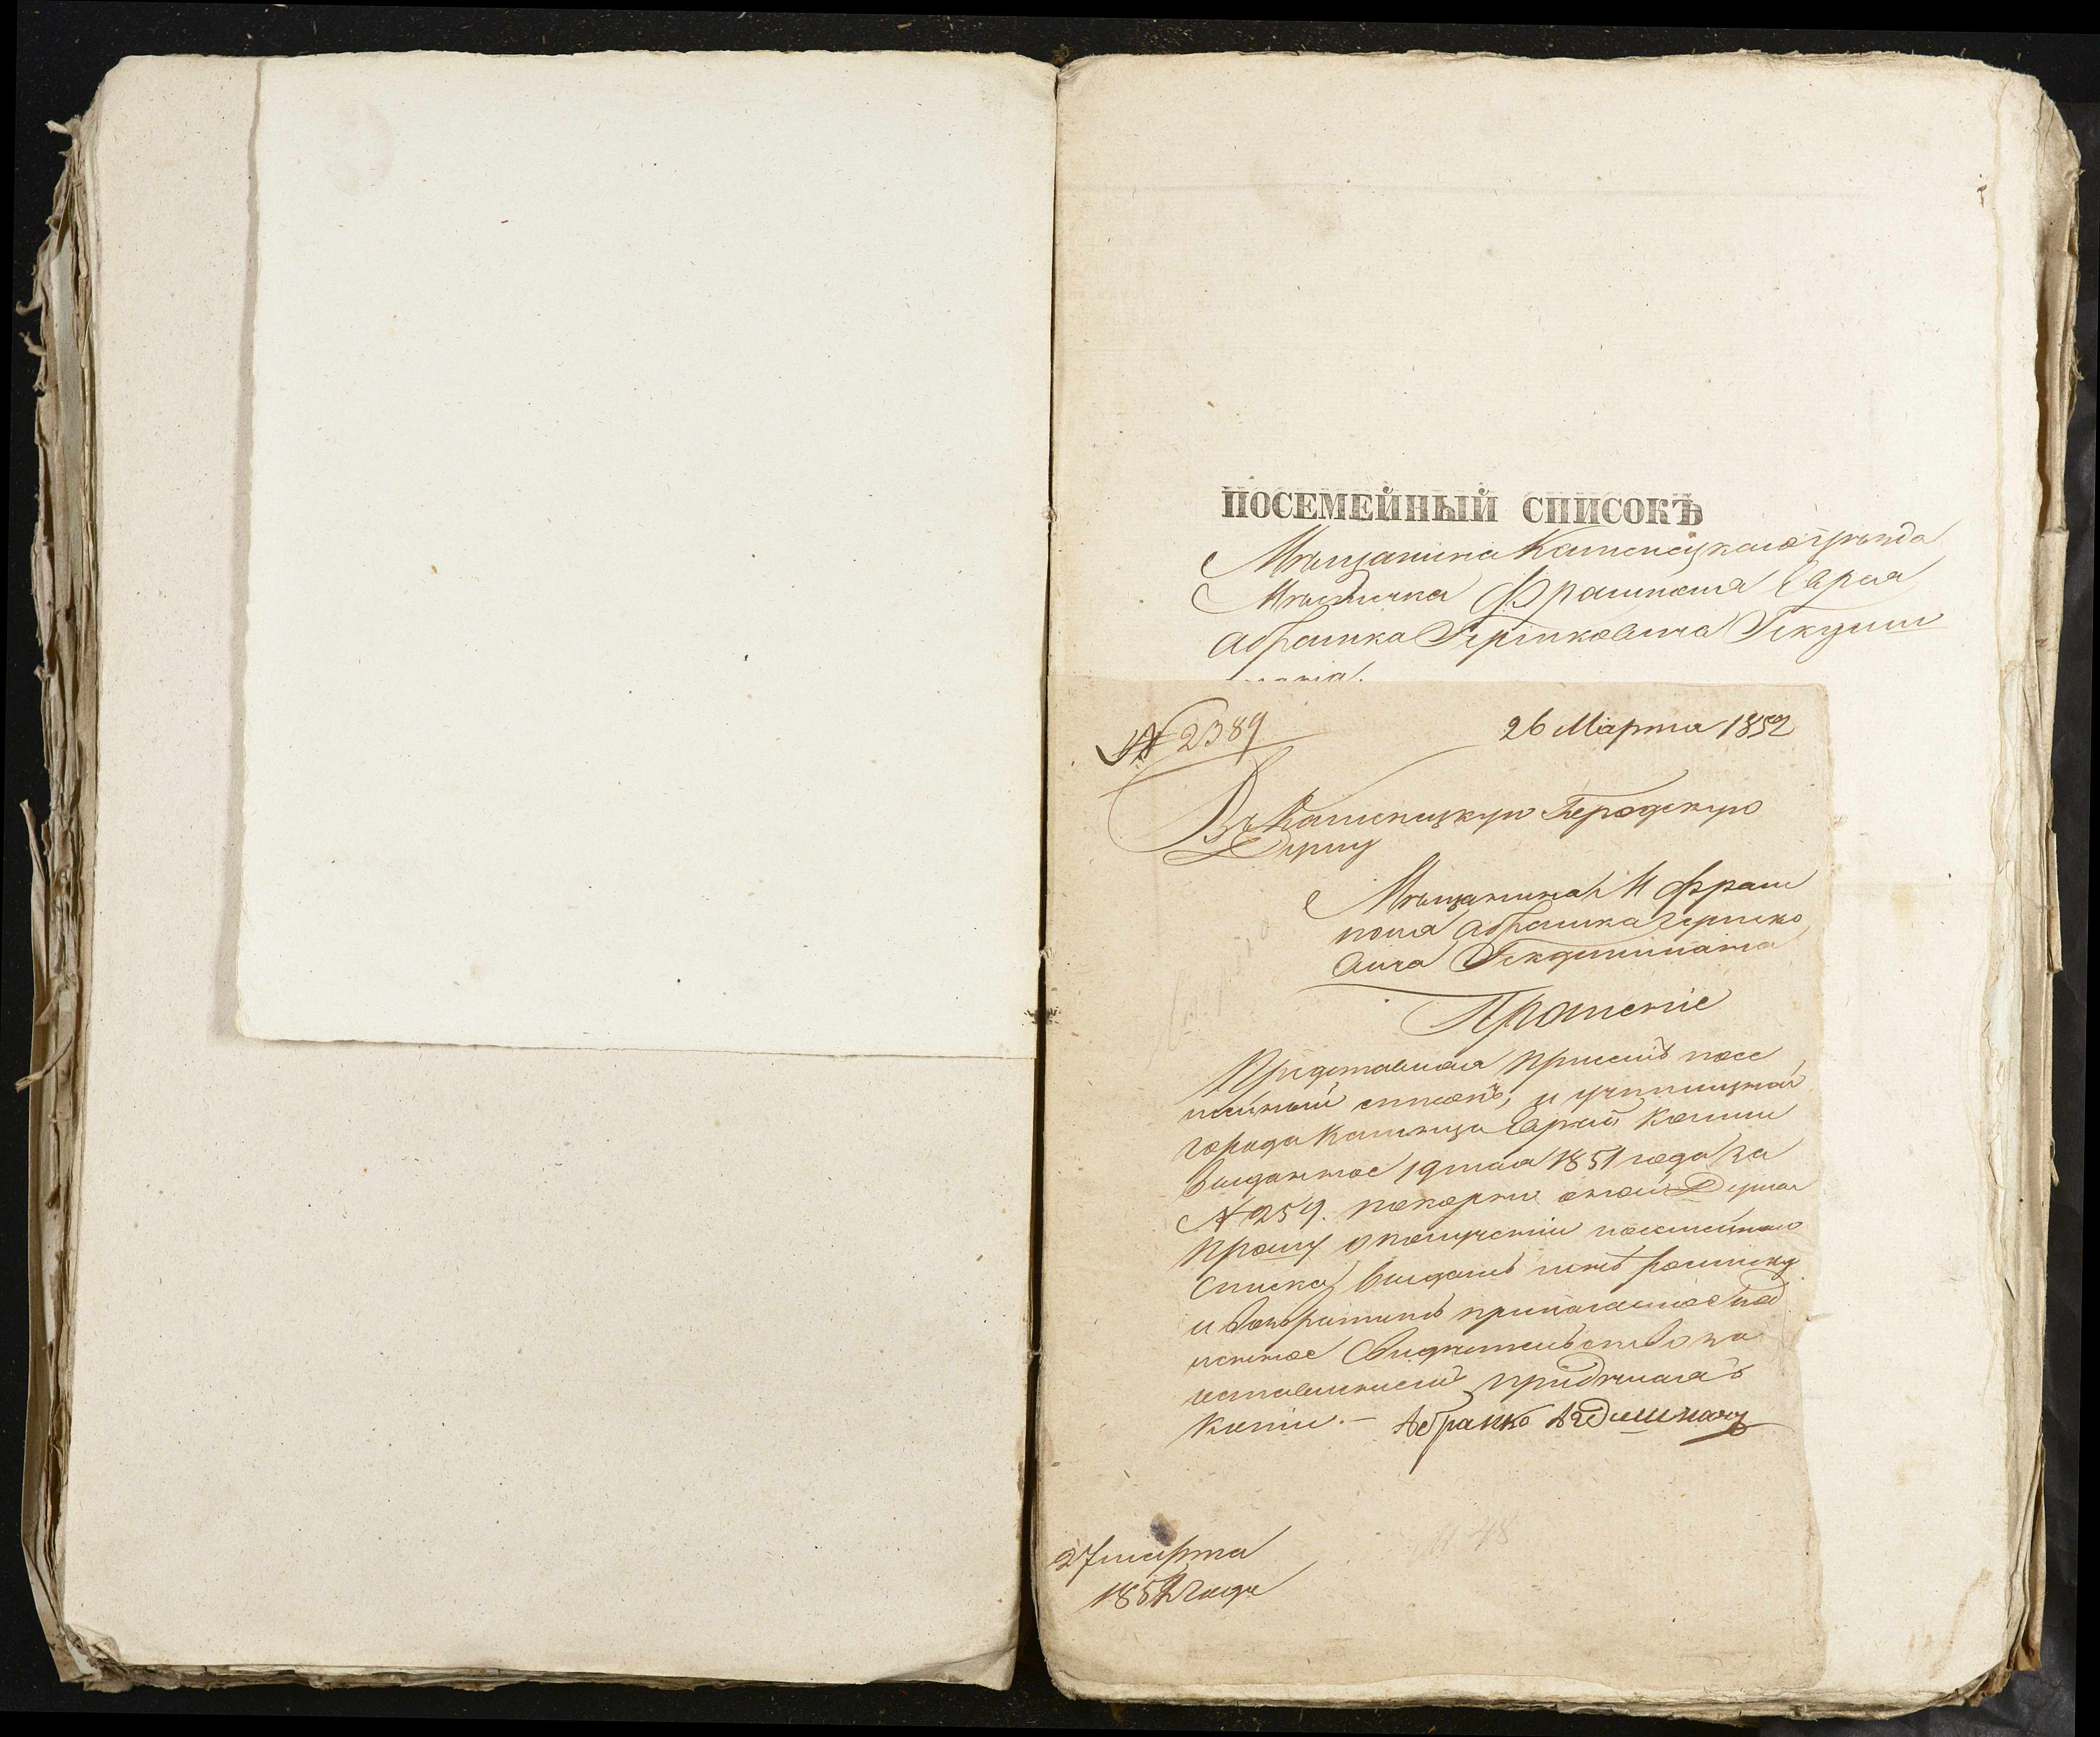 ПОСЕМЕЙНЫЙ СПИСОКЪ
Мѣщанина Каменецкаго уѣзда
Мѣстечка Фрампола Еврея
Абрамка Гершковича Гекдиш
мана.
№ 2389
26 Марта 1852
Въ Каменецкую Городскую
Думу
Мѣщанина М Фрам
пола Абрамка Гершко
вича Гекдишмана
Прошеніе
Представляя при семъ посе
мейный списокъ, и
города Каменца Еврей
выданное 19 мая 1851 года за
№ 259. покорно оной Думы
прошу о получении посемейнаго
списка выдать мнѣ росписку
и возвратить прилагаемое под
линное Свидѣтельство за
оставленіемъ при дѣлахъ
копіи.— Абрамко
27 марта
1852 года